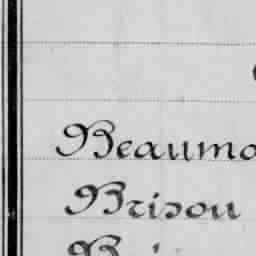 Beaumo
Brisou